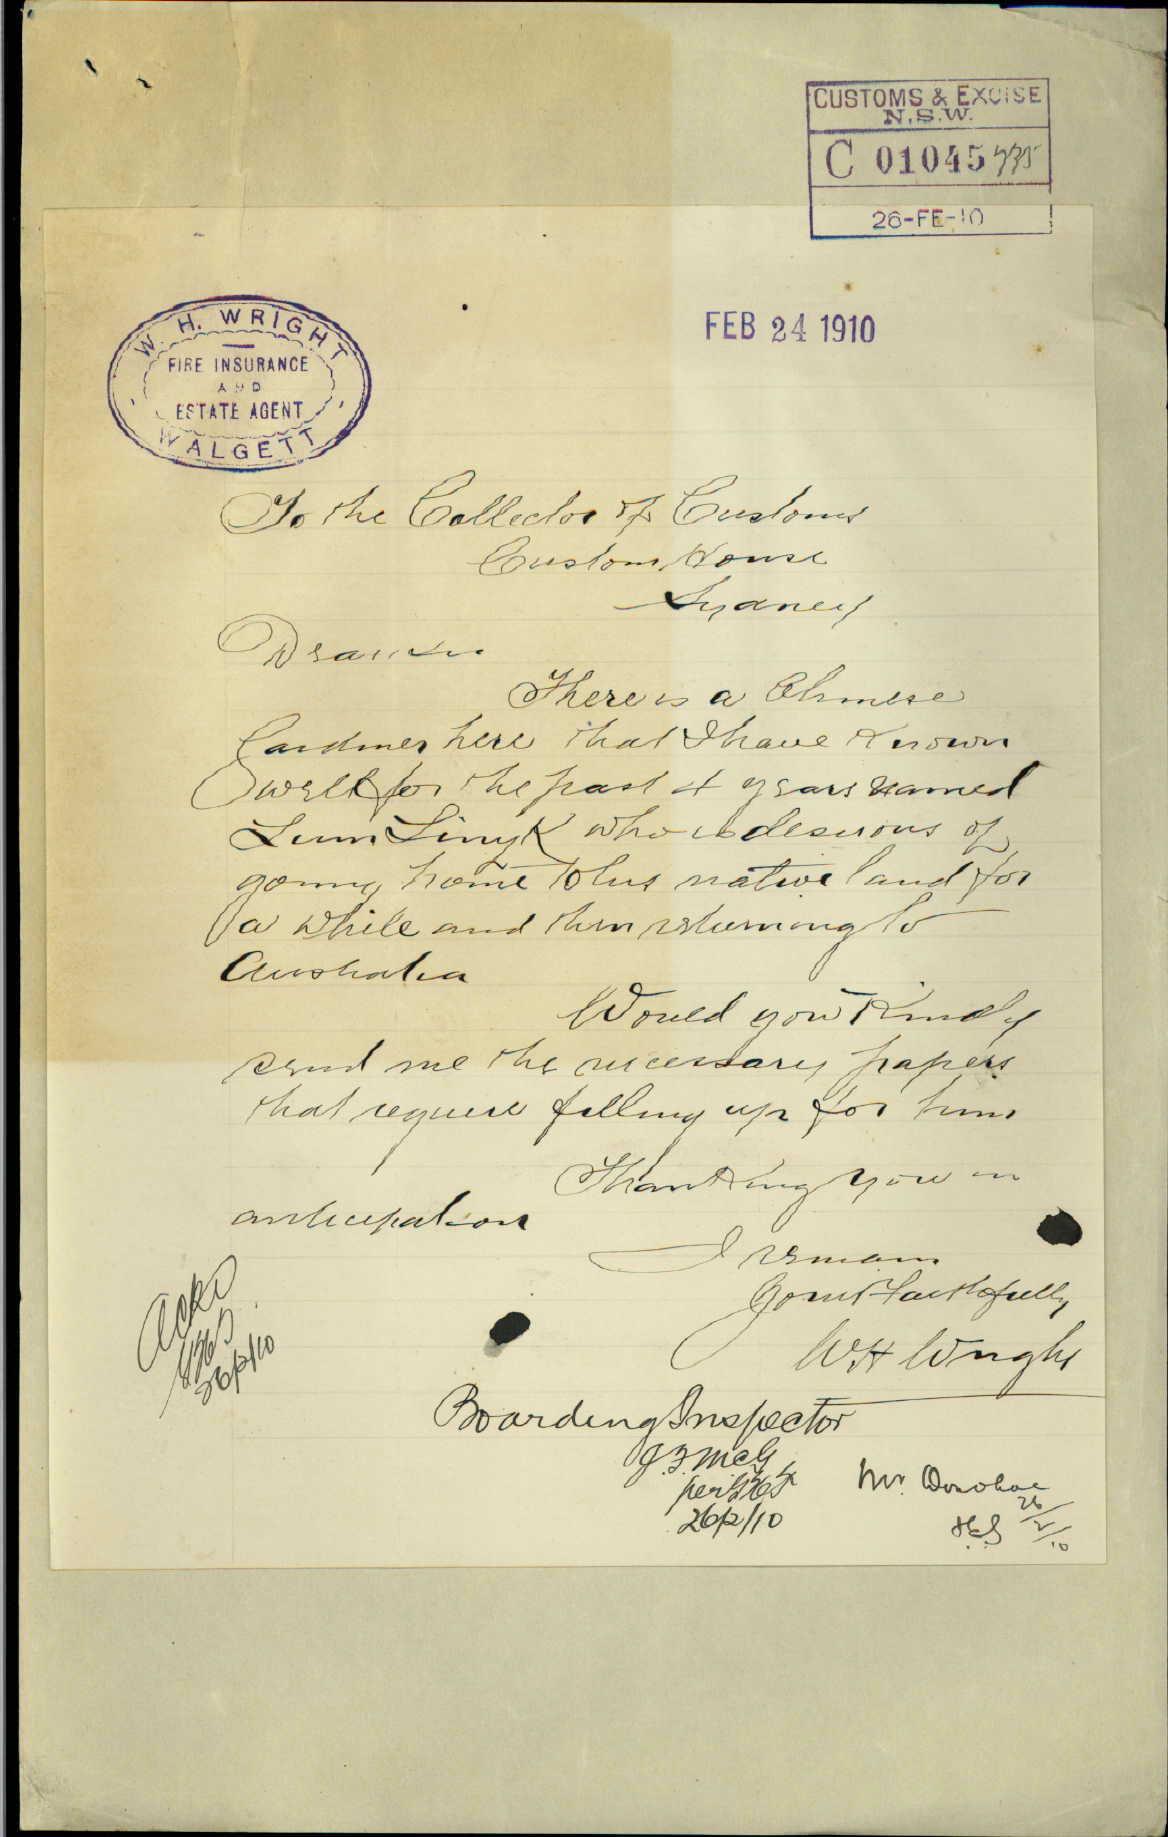 CUSTOMS & EXCISE
N.S.W.
C 01045
26-FE-10
W. H. WRIGHT
FIRE INSURANCE
AND
ESTATE AGENT
WALGETT
FEB 24 1910
To the Collector of Customs
Custom House
Sydney
Dear Sir
There is a Chinese
Gardiner here that I have known
well for the past 4 years named
Lum Ling K who is desirous of
going home to his native land for
a while and then returning to
Australia
Would you kindly
send me the necessary papers
that require filling up for him
Thanking you in
anticipation
I remain
Yours Faithfully
W H Wright
Ackd
26/2/10
Boarding Inspector
J.F. McG
per
26/2/10
Mr. Donohoe
26/2/10